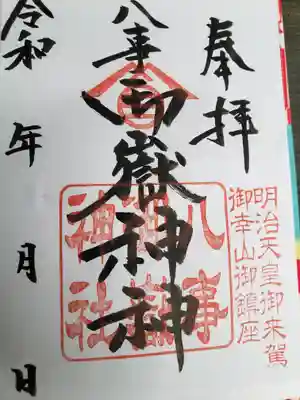 奉拝
明治天皇御来駕
御幸山御鎮座
八事御嶽神社
八事
御嶽
神社
令和 年 月 日